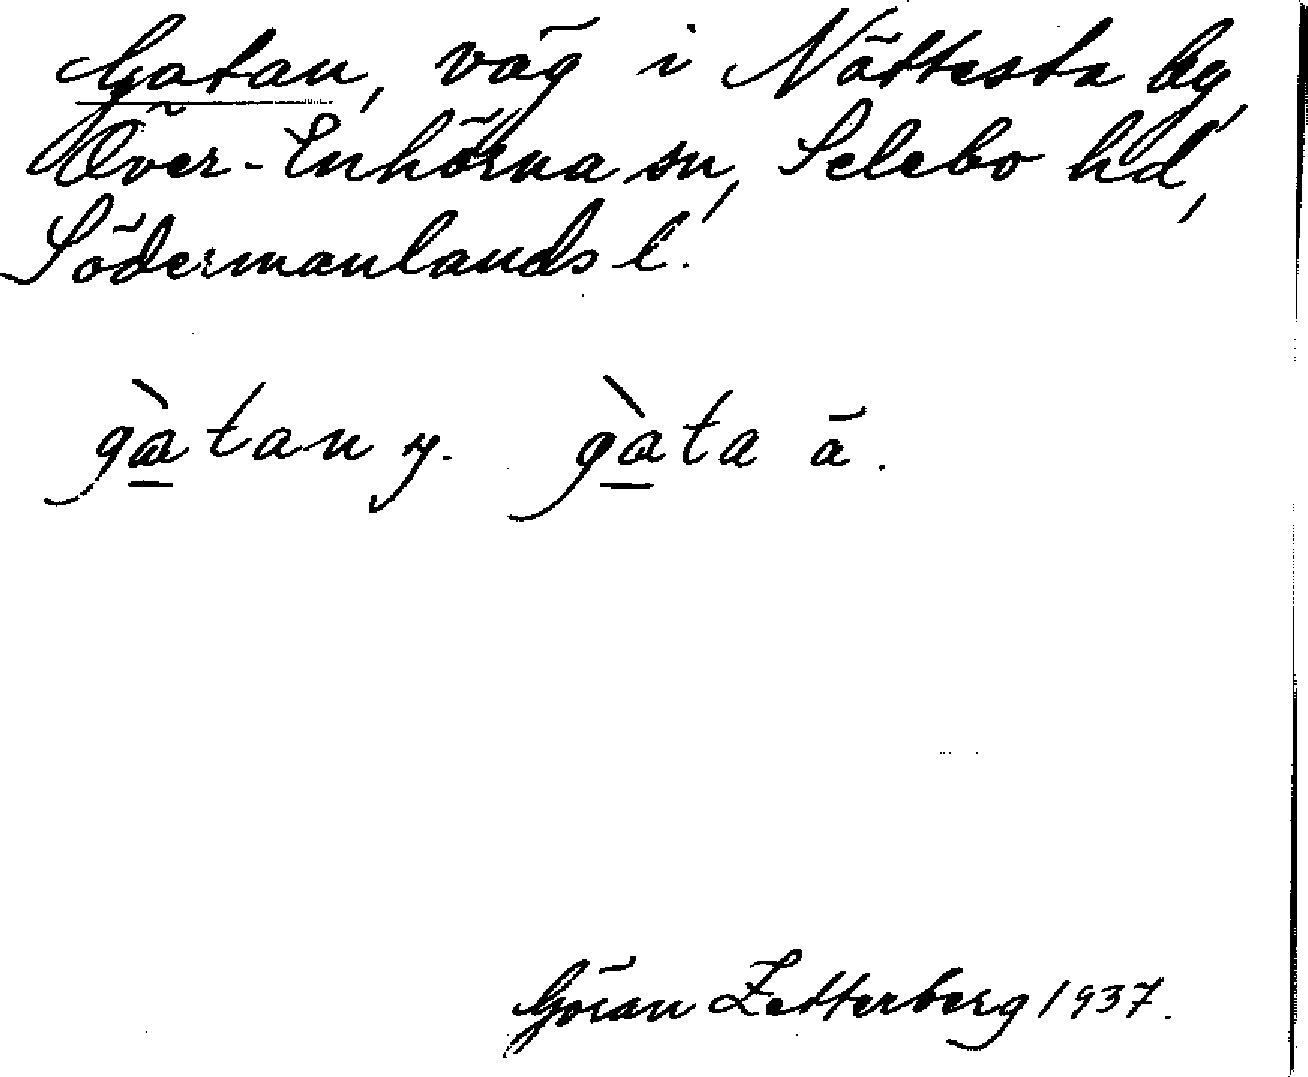 Gatan, väg i Nättesta by,
Över-Enhörna sn, Selebo hd,
Södermanlands l.
gàtan y. gàta ä.
Göran Zetterberg 1937.